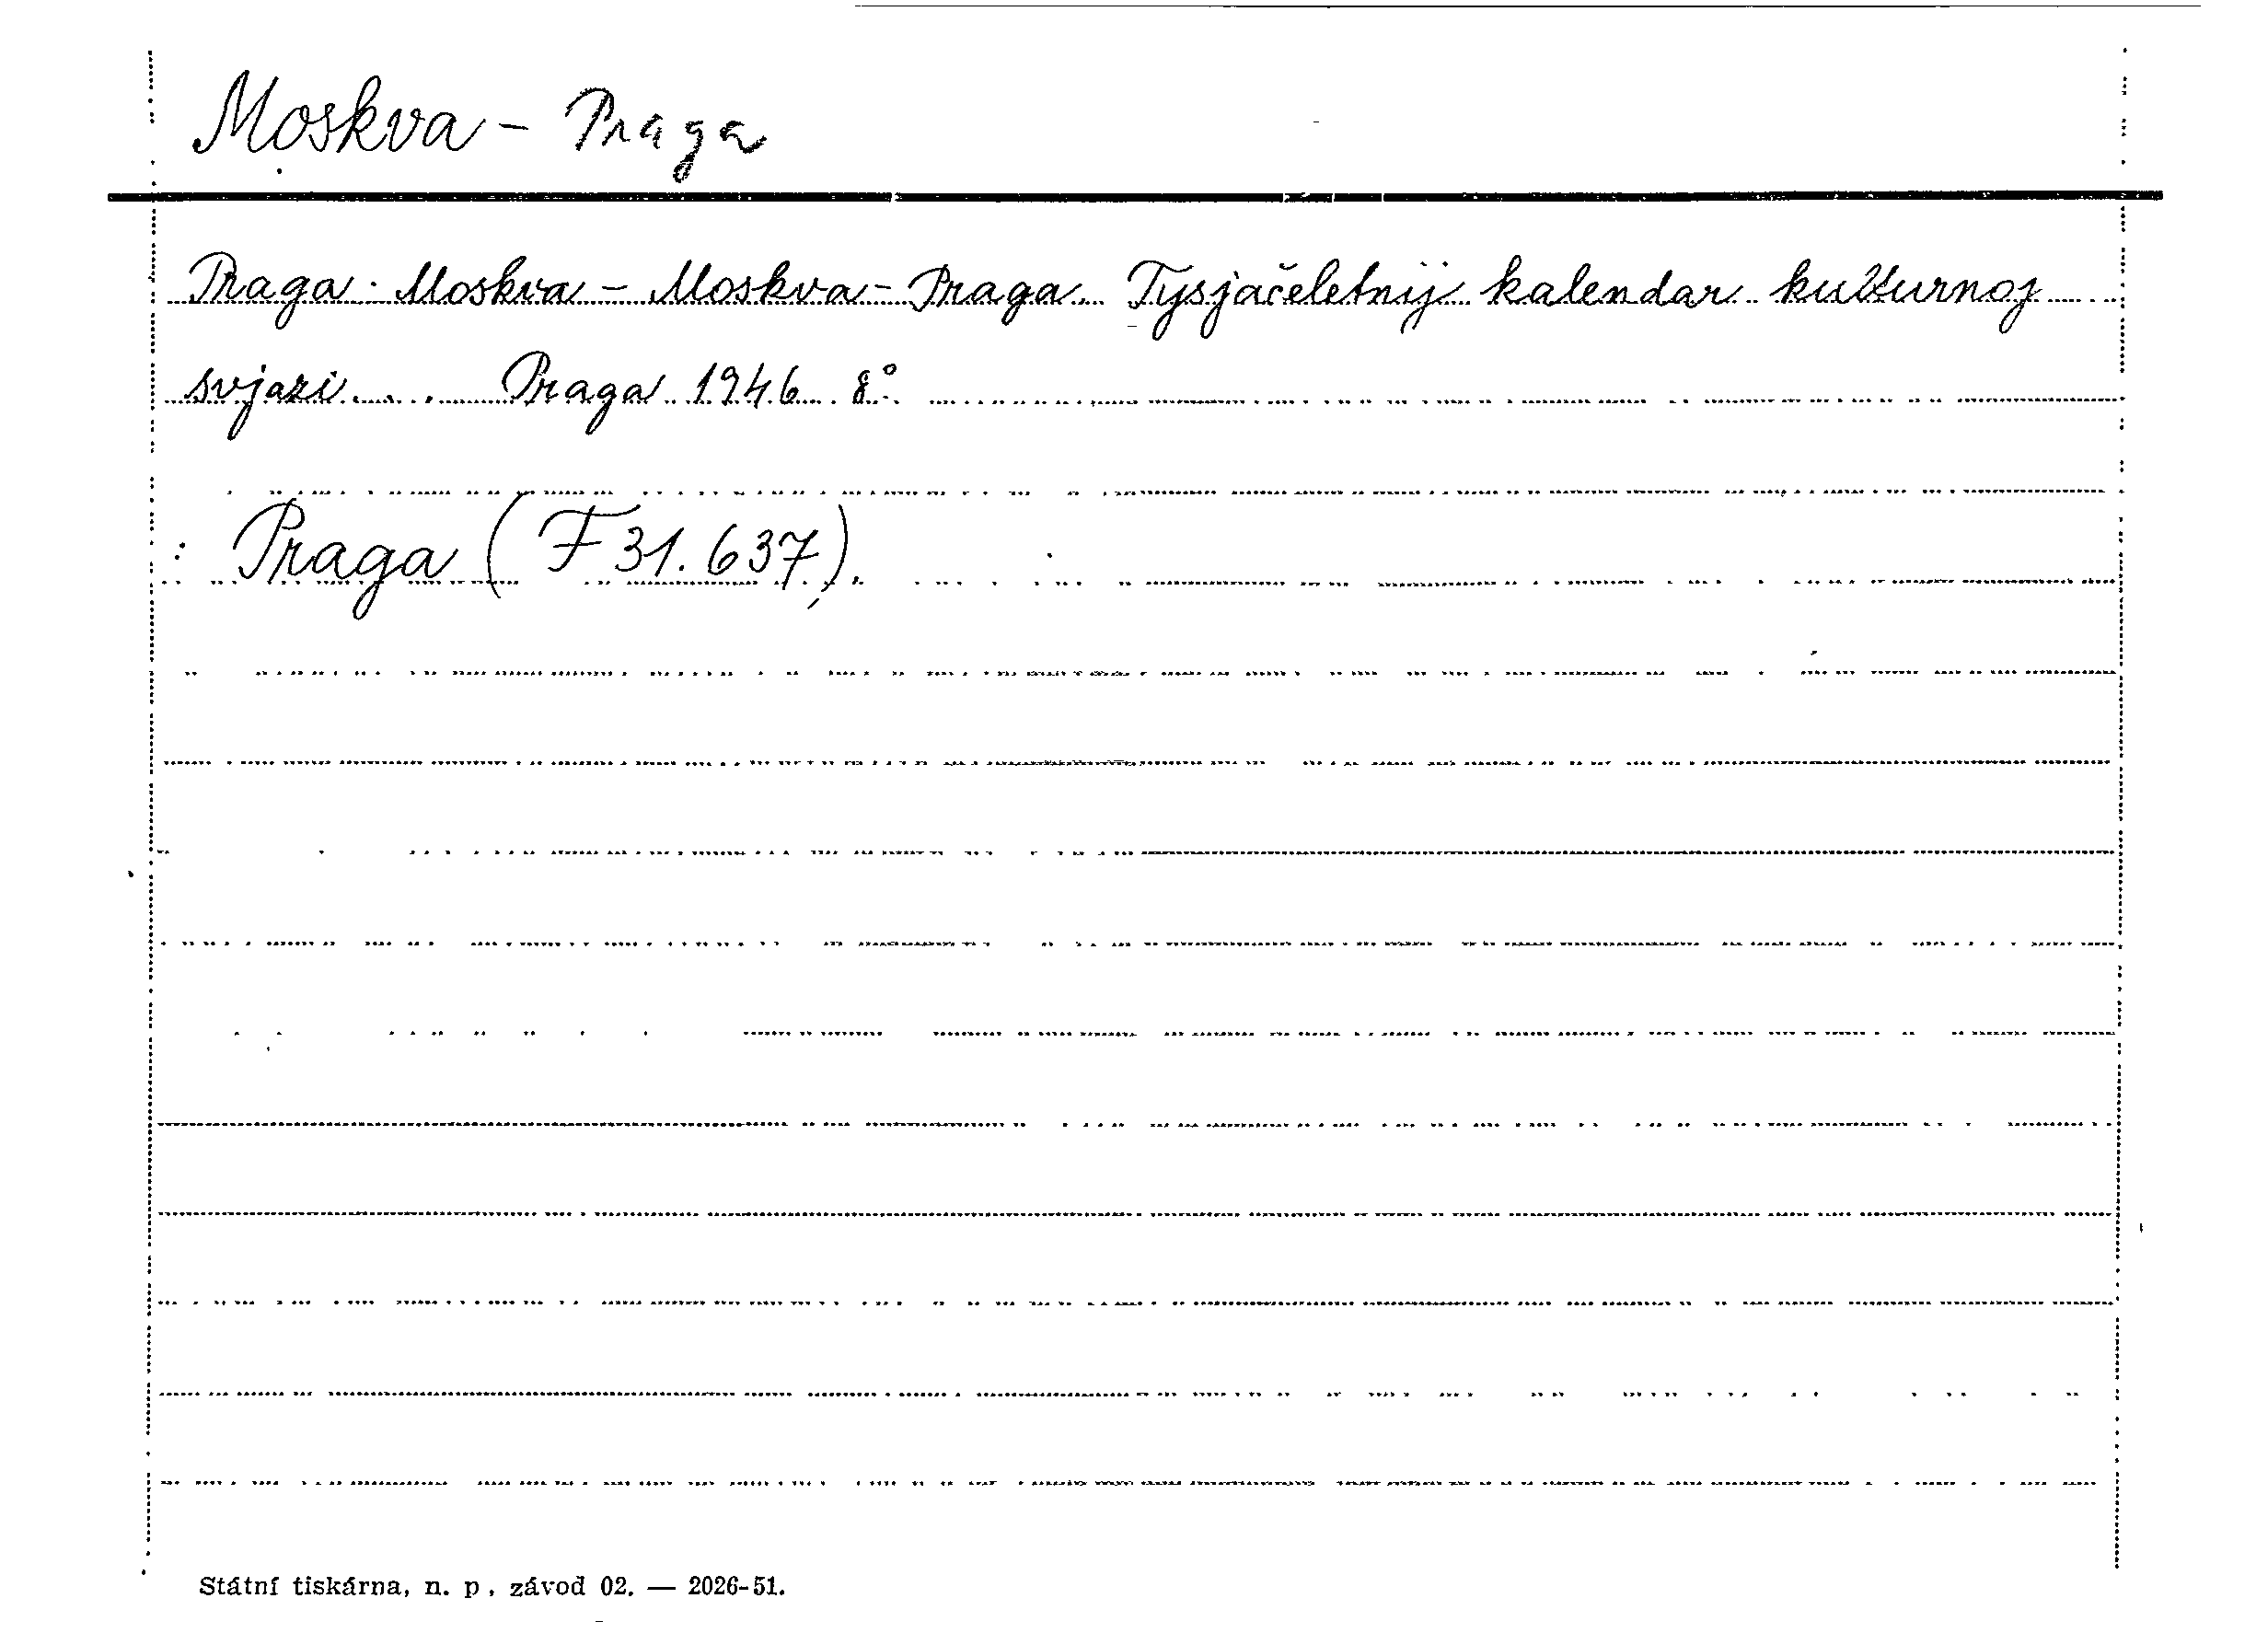 Moskva - Praga
Praga - Moskva - Moskva - Praga. Tysjačeletnij kalendar kulturnoj
svjazi . . . Praga 1946. 8°.
: Praga (F 31.637).
Státní tiskárna, n. p., závod 02. — 2026-51.